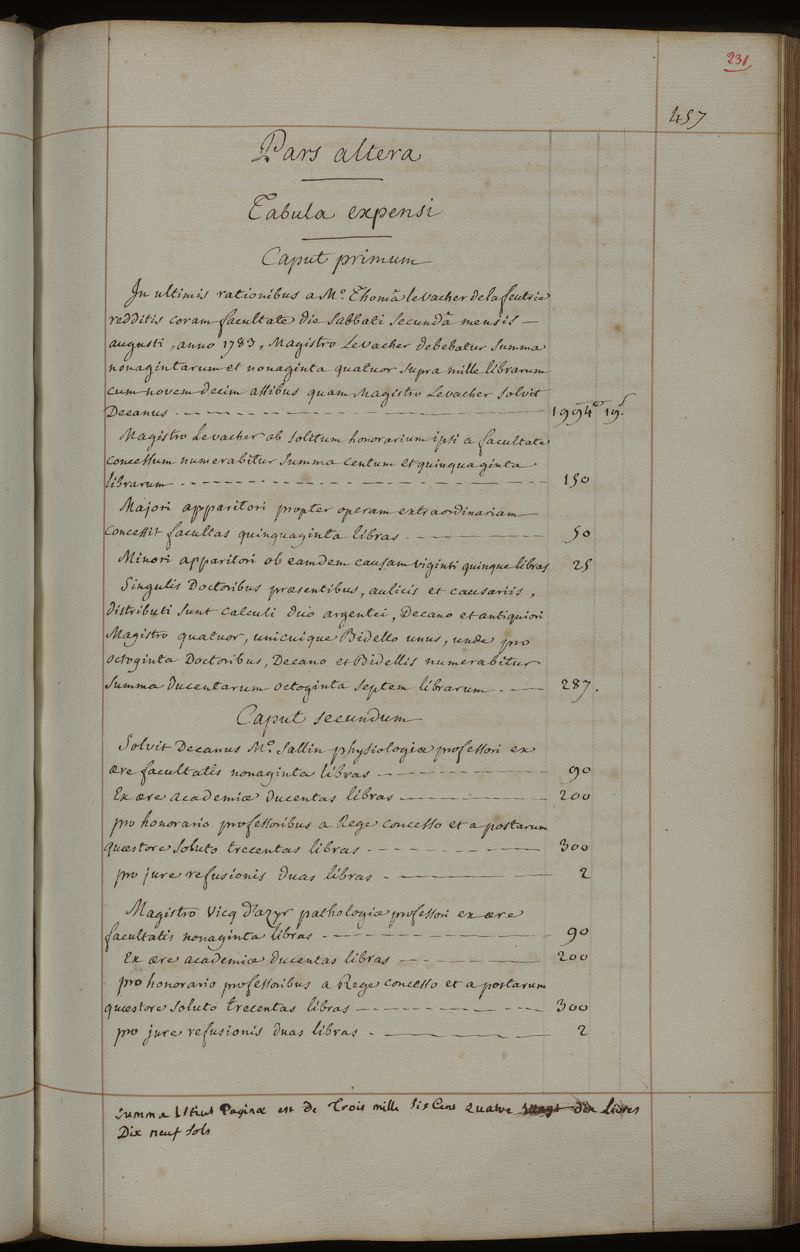 231
457
Pars altera
Tabula expensi
Caput primum
In ultimis rationibus a M.º Thomâ levacher de la feutrie
redditis coram facultate die Sabbati Secundâ mensis
augusti, anno 1783, Magistro Levacher debebatur Summa
nonagintarum et nonaginta quatuor Supra mille librarum
cum novem decim assibus quam Magistro Levacher Solvit
Decanus 1994 19
Magistro Levacher ob Solitum honorarium ipsi a facultate
concessum numerabitur Summa centum et quinquaginta
librarum 150
Majori apparitori propter operam extraordinariam
Concessit facultas quinquaginta libras 50
Minori apparitori ob eamdem causam viginti quinque libras 25
Singulis Doctoribus præsentibus, aulicis et causariis,
distributi Sunt calculi duo argentei, Decano et antiquiori
Magistro quatuor, unicuique Bidello unus, unde pro
octoginta Doctoribus, Decano et Bidellis numerabitur
Summa ducentarum octoginta Septem librarum 287.
Caput secundum
Solvit Decanus M.º Sallin physiologiæ professori ex
ære facultatis nonaginta libras 90
Ex ære academiæ ducentas libras 200
pro honorario professoribus a Rege concesso et a postarum
quæstore Soluto trecentas libras 300
pro jure refusionis duas libras 2
Magistro Vicq d'azyr pathologiæ professori ex ære
facultatis nonaginta libras 90
Ex ære academiæ ducentas libras 200
pro honorario professoribus a Rege concesso et a postarum
quæstore Soluto trecentas libras 300
pro jure refusionis duas libras 2
Summa istius Paginæ est de Trois mille Six Cent quatre vingt dix Livres
Dix neuf Sols